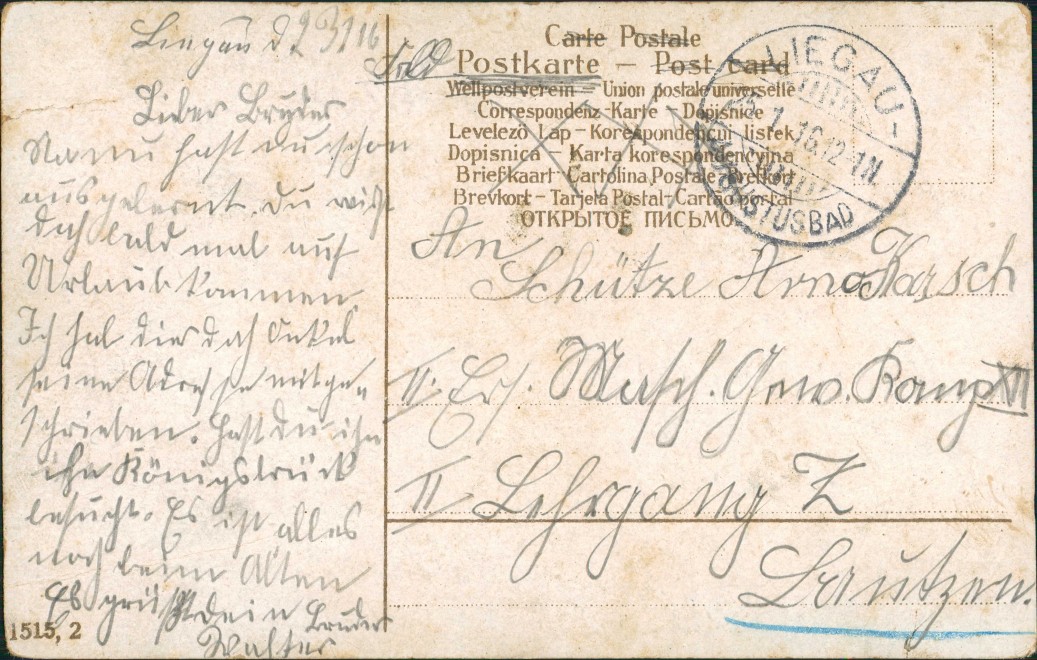 Liegau d 23 1 16
Lieber Bruder
Nanu hast du schon
ausgelernt. Du wirst
doch bald mal auf
Urlaub kommen.
Ich hab dir doch Onkel
seine Adresse mitge-
schrieben. Hast Du ihn
in Königsbrück
besucht. Es ist alles
noch beim Alten
Es grüßt dein Bruder
Walter
1515, 2
Feld
Carte Postale
Postkarte — Post card
Weltpostverein — Union postale universelle
Correspondenz-Karte — Dopisnice
Levelező Lap — Korespondenční listek
Dopisnica — Karta korespondencyjna
Briefkaart — Cartolina Postale — Brefkort
Brevkort — Tarjeta Postal — Cartão postal
ОТКРЫТОЕ ПИСЬМО
LIEGAU-
1.16.12-1N.
AUGUSTUSBAD
An
Schütze Arno Karsch
II. Ers. Masch. Gew. Komp XII
II Lehrgang Z
Bautzen.